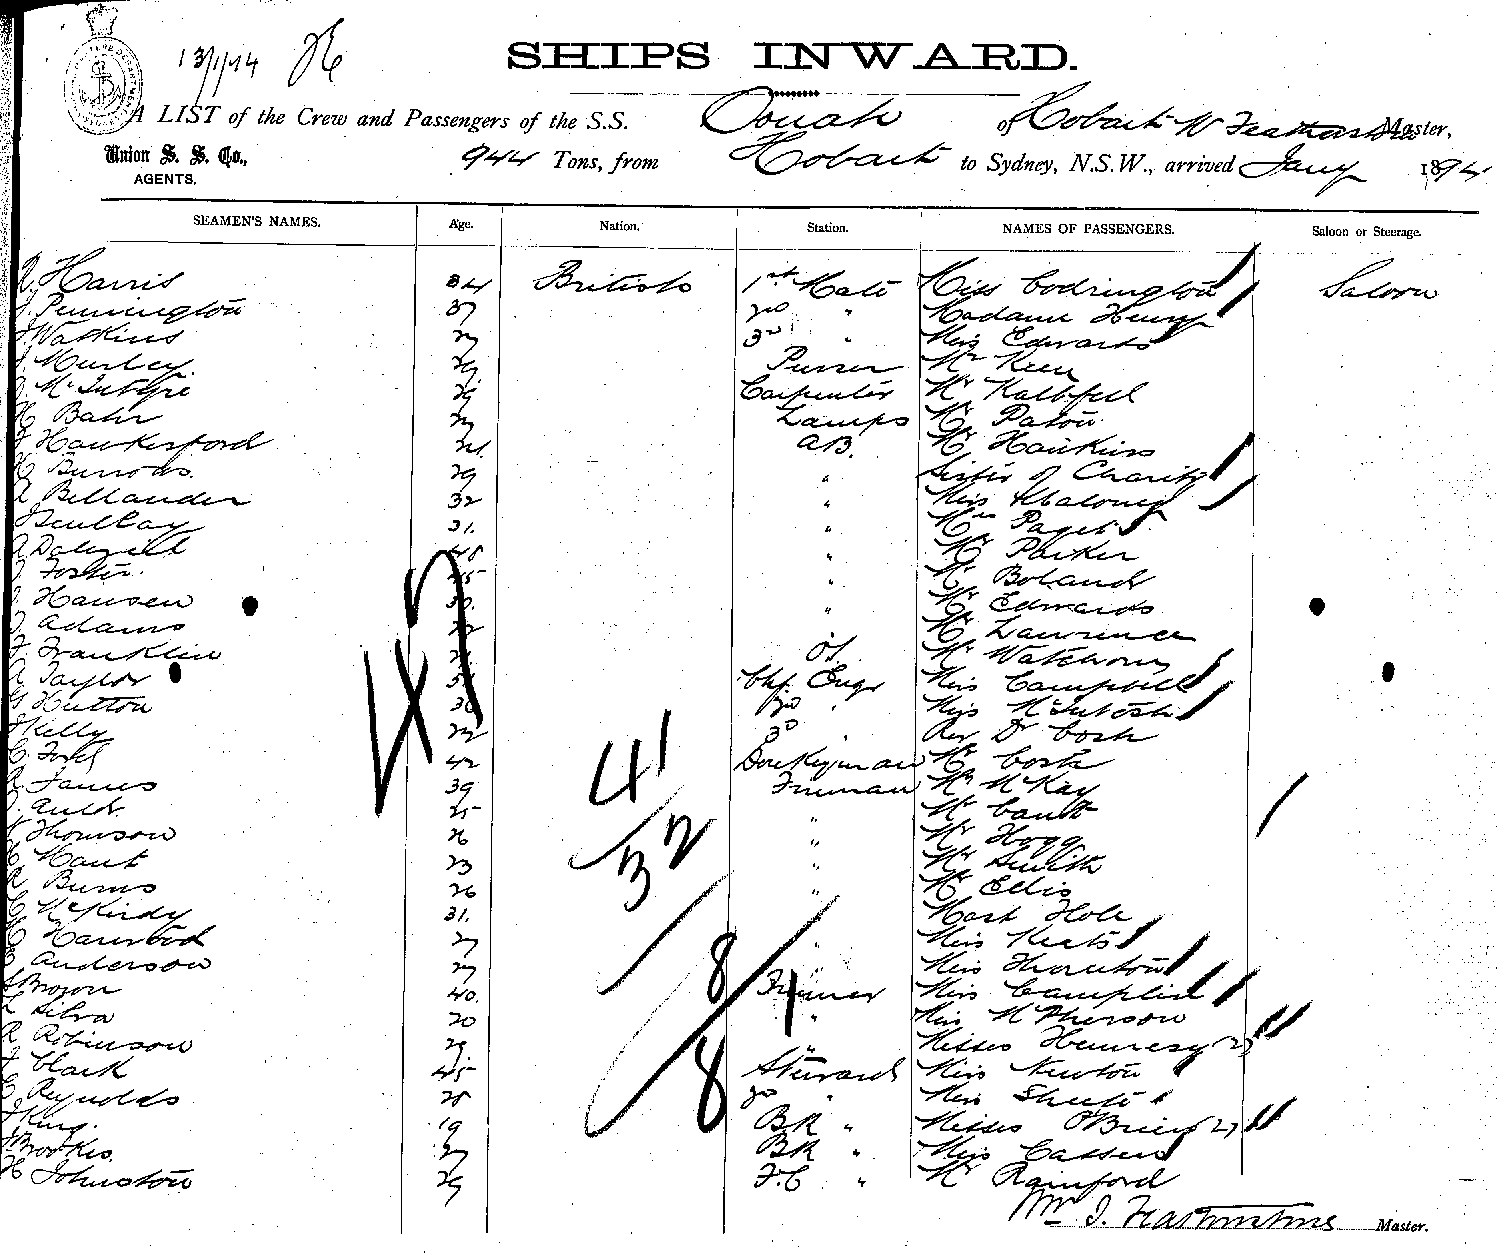 13/1/94
SHIPS INWARD.
A LIST of the Crew and Passengers of the S.S. Oonah of Hobart W Featherstone Master,
Union S. S. Co., 944 Tons, from Hobart to Sydney, N.S.W., arrived Jany 1894
AGENTS.
SEAMEN'S NAMES. Age. Nation. Station. NAMES OF PASSENGERS. Saloon or Steerage.
Harris 34 British 1st Mate Miss Codrington Saloon
Pennington 37 2nd " Madame Henry
Watkins 3rd " Miss Edwards
Murley 29 Purser Mr Keen
McIntyre 29 Carpenter Mr
H Bahr Lamps Mr Paton
Hawkesford AB. Mr Hawkins
H Burrows. 29 " Sister of Charity
A Bellander 32 " Miss Maloney
31. " Mrs Paget
A Dalziel " Mr Parker
Foster 45 " Mr Boland
Hansen 30. " Mr Edwards
Adams Mr Lawrence
F Franklin Mr Watchorn
A Taylor Chf. Engr Miss Campbell
G Hutton 30 2nd " Miss McIntosh
J Kelly 3rd " Rev Dr Cosh
C Ford 42 Donkeyman Mr Cosh
R James 39 Fireman Mr McKay
Auld 25 " Mr
Thomson 26 " Mr Hogg
Mant 23 " Mr Smith
R Burns 26 " Mr Ellis
McKirdy 31. Mast Hole
Harwood 27 " Miss Keats
Anderson 27 " Miss Thornton
Brown 40. Trimmer Miss Camplin
Silva 20 " Miss McPherson
R Robinson 29 " Misses Hennesy (2)
Clark 45 Steward Miss Newton
Reynolds 28 2nd " Miss
King. 19 BR " Misses O'Brien (2)
Brookes. 27 BR " Miss Cassen
H Johnston 29 F.C " Mr Rainford
Master.
45
41
32
8
4
8